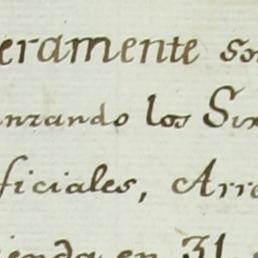 eramente so
anzando los Su
ficiales, Arre
ienda en 31.